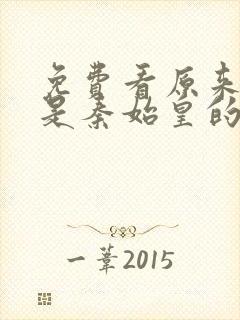 免费看原来
是秦始皇的
一苇2015